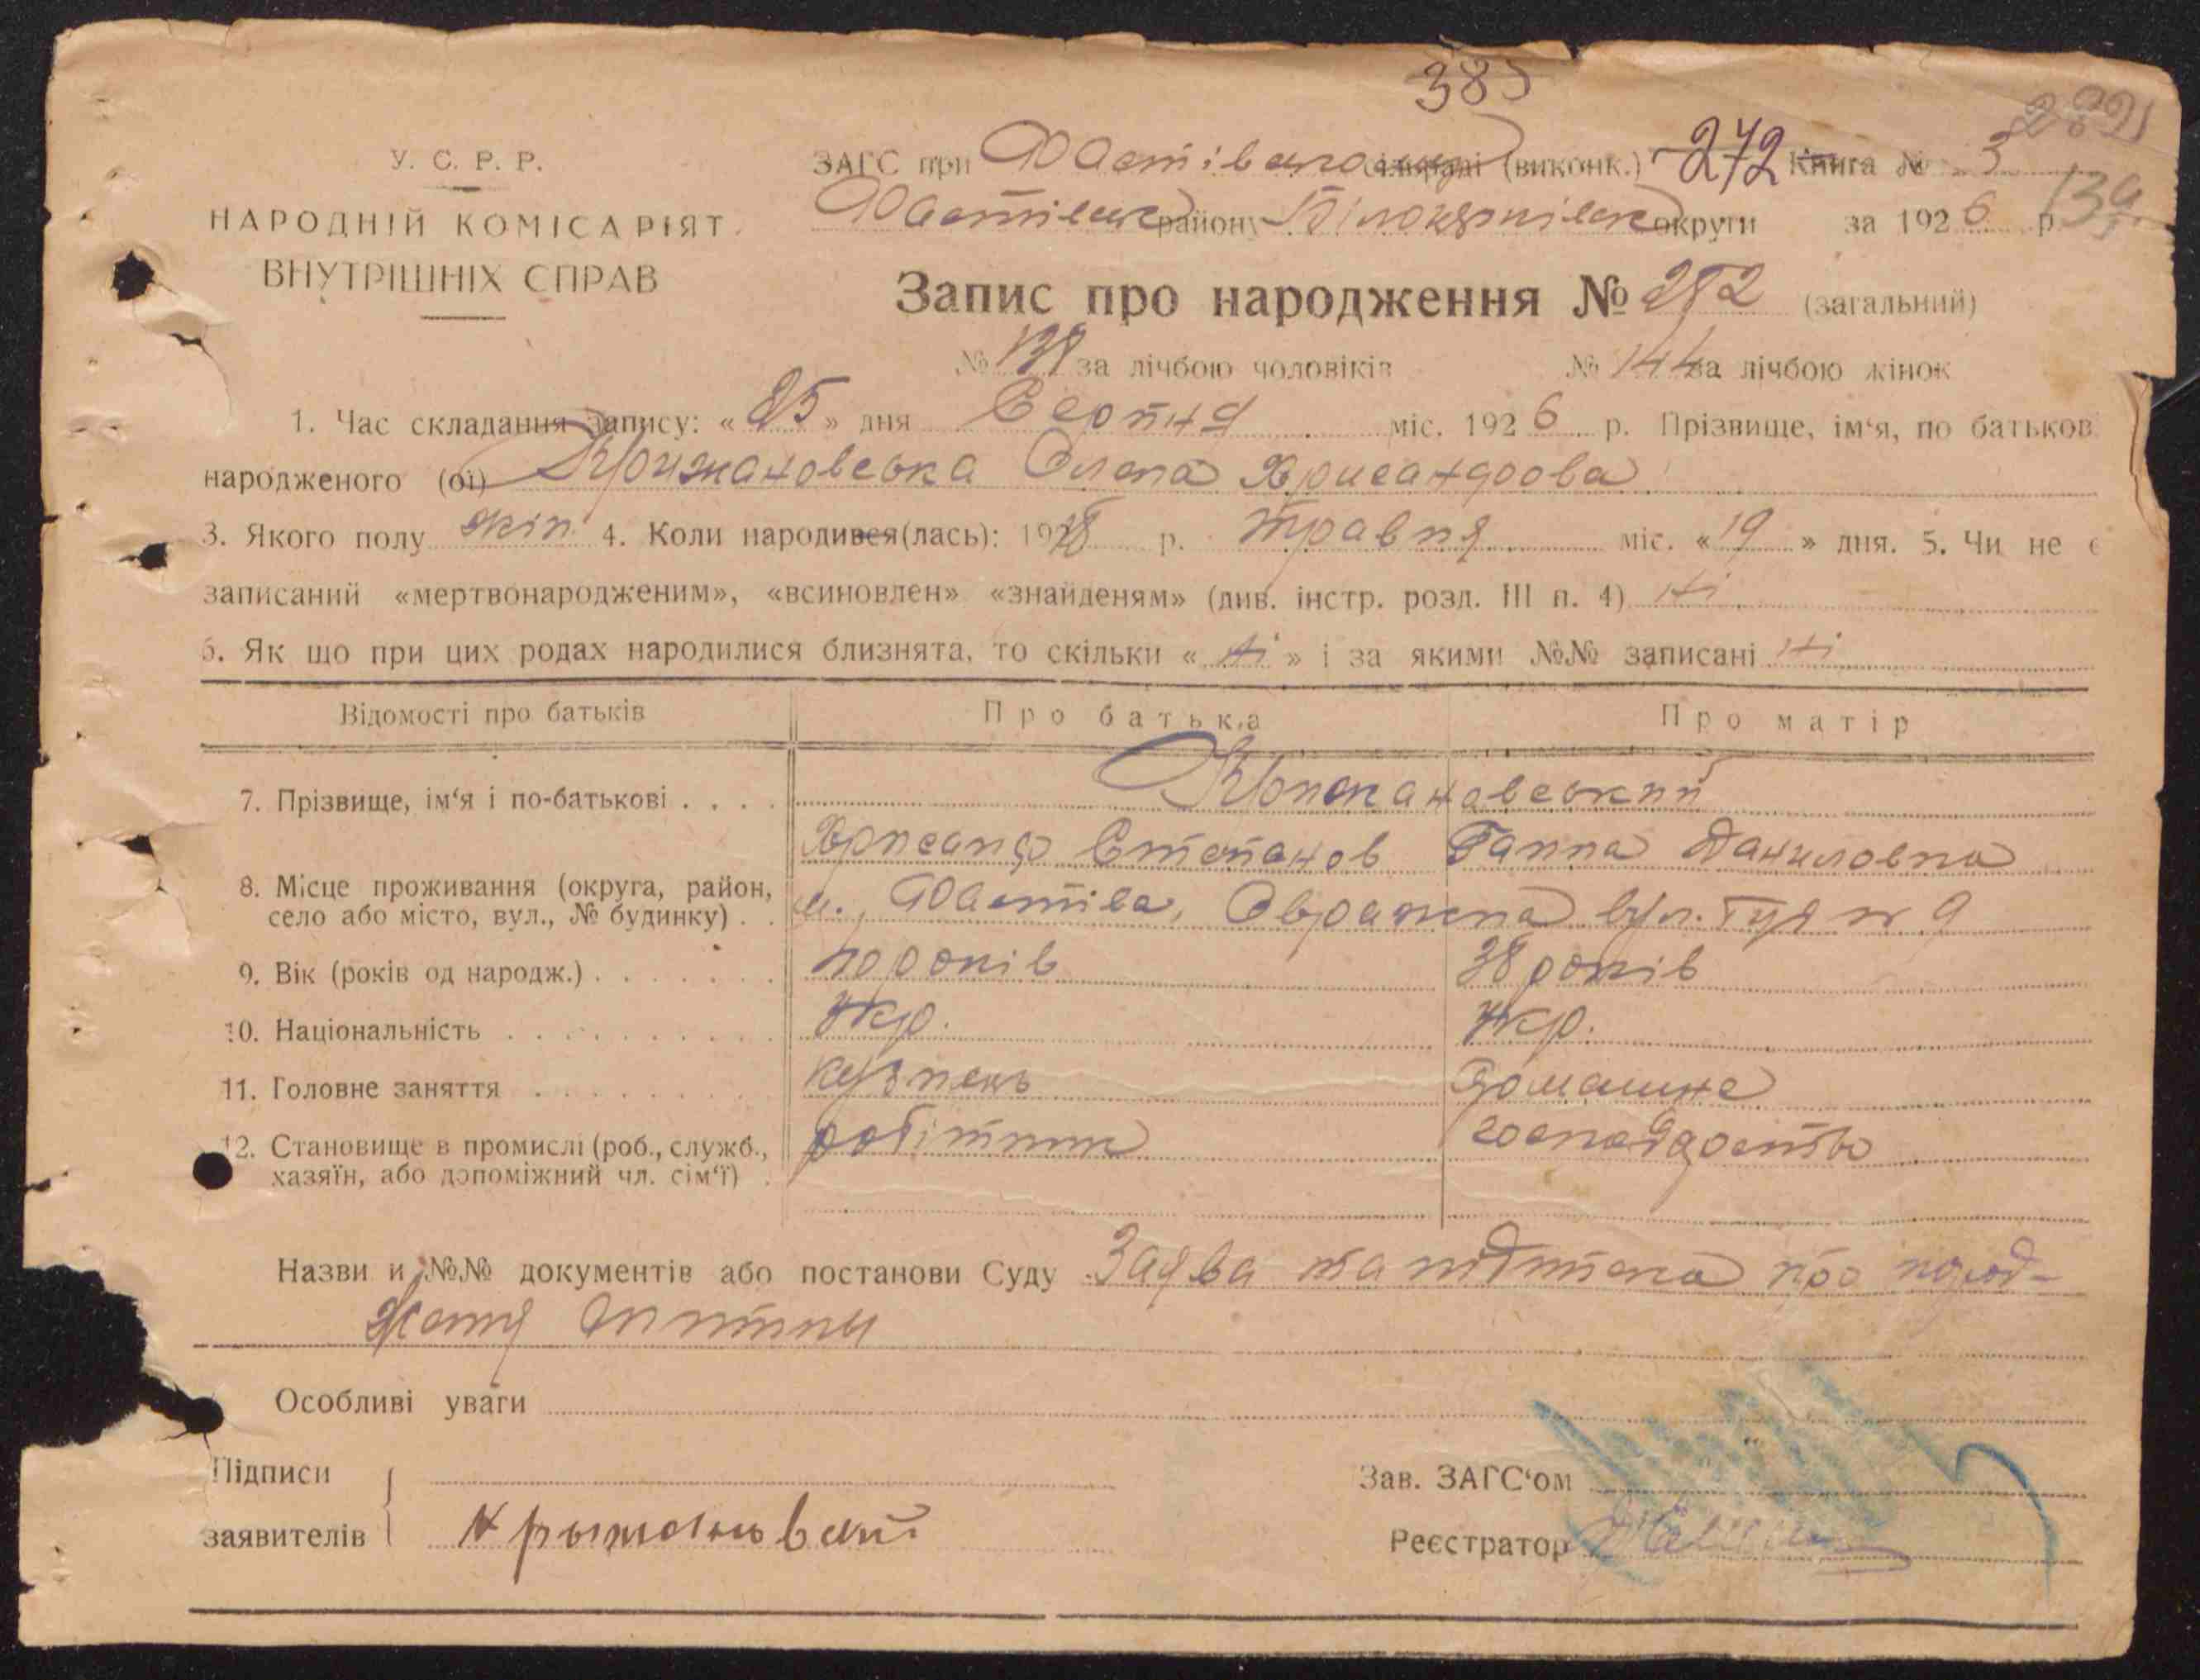 385
У. С. Р. Р.
НАРОДНІЙ КОМІСАРІЯТ
ВНУТРІШНІХ СПРАВ
ЗАГС при Фастівському сільраді (виконк.) 272 Книга № 3
Фастівськ району Білоцерківськ округи за 1926 р.
Запис про народження № 282 (загальний)
№ 138 за лічбою чоловіків № 144 за лічбою жінок
1. Час складання запису: « 25 » дня Серпня міс. 1926 р. Прізвище, ім‘я, по батьков
народженого (ої) Крижановська Олена Хрисандрова
3. Якого полу жін. 4. Коли народився(лась): 1918 р. травня міс. « 19 » дня. 5. Чи не є
записаний «мертвонародженим», «всиновлен» «знайденям» (див. інстр. розд. III п. 4) ні
6. Як що при цих родах народилися близнята, то скільки « ні » і за якими №№ записані ні
Відомості про батьків Про батька Про матір
7. Прізвище, ім‘я і по-батькові Крижановський
Хрисанф Степанов Ганна Даниловна
8. Місце проживання (округа, район, село або місто, вул., № будинку) м. Фастів, Овражна вул. № 9
9. Вік (років од народж.) 40 років 38 років
10. Національність Укр. Укр.
11. Головне заняття кузнець домашнє
12. Становище в промислі (роб., служб., хазяїн, або допоміжний чл. сім‘ї) робітник господарство
Назви и №№ документів або постанови Суду Заява та підписка про народ-
ження дитини
Особливі уваги
Підписи
заявителів Крыжановский
Зав. ЗАГС‘ом
Реєстратор